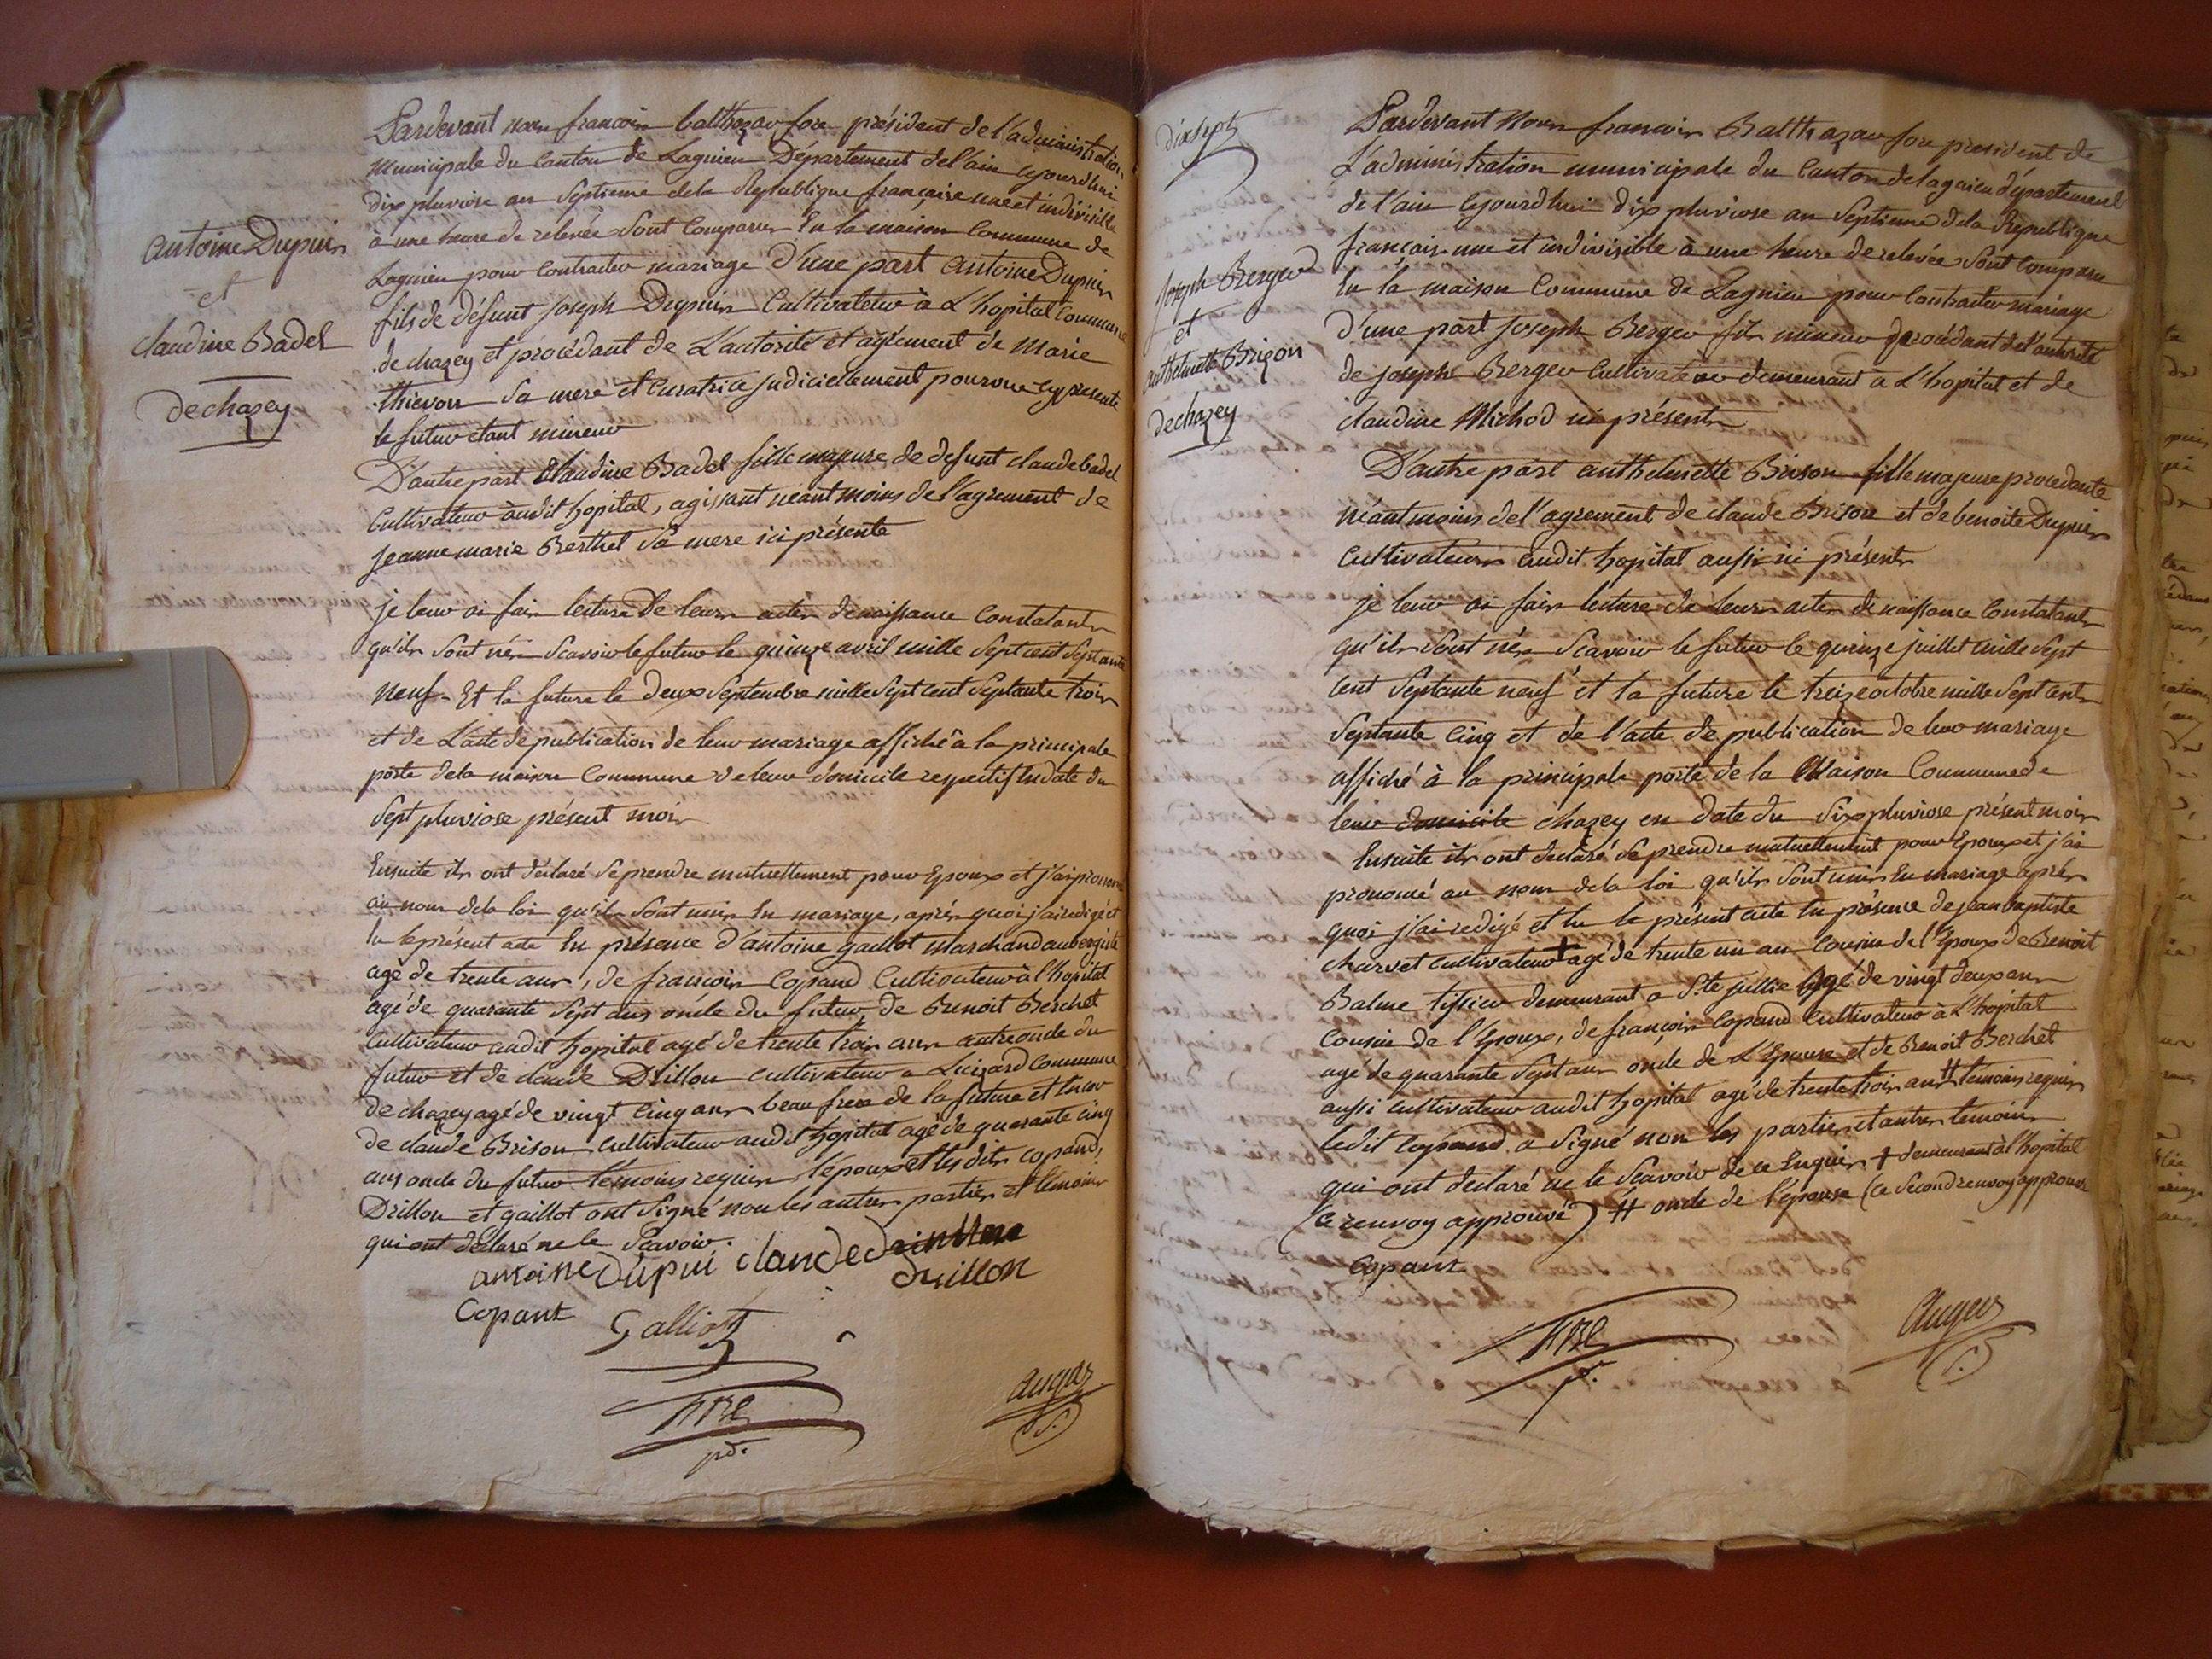 Antoine Dupuis
et
claudine Badel
de chazey
Pardevant nous francois balthazar fore président de l'administration
municipale du Canton de Lagnieu Département de l'ain cejourd'hui
dix pluviose an Septieme de la Republique française une et indivisible
à une heure de relevée Sont Comparus En la maison Commune de
Lagnieu pour Contracter mariage D'une part Antoine Dupuis
fils de défunt joseph Dupuis Cultivateur à L'hopital Commune
de chazey et procédant de L'autorité et agrément de Marie
thievon Sa mere et Curatrice judiciellement pourvue cy présente
le futur étant mineur
D'autre part Claudine Badel fille majeure de defunt claude badel
Cultivateur audit hopital, agissant néantmoins de l'agrement de
jeanne marie Berthet Sa mere ici présente
je leur ai fais lecture De leurs actes de naissance Constatants
qu'ils Sont nés Scavoir le futur le quinze avril mille Sept cent Septante
neuf. Et la future le deux Septembre mille Sept cent Septante trois
et de L'acte de publication de leur mariage affiché à la principale
porte de la maison Commune de leur domicile respectif En date du
Sept pluviose présent mois
Ensuite ils ont déclaré Se prendre mutuellement pour Epoux et j'ai prononcé
au nom de la loi qu'ils Sont unis En mariage, après quoi j'ai redigé et
lu le présent acte En présence d'antoine gaillot marchand aubergiste
agé de trente ans, de francois Copand Cultivateur à l'hopital
agé de quarante Sept ans oncle du futur, De Benoit Berchet
Cultivateur audit hopital agé de trente trois ans autre oncle du
futur et de claude Drillon cultivateur a Luizard Commune
de chazey agé de vingt Cinq ans beau frere de la future et Encor
de claude Brison Cultivateur audit hopital agé de quarante cinq
ans oncle du futur témoins requis l'époux et lesdits copand,
Drillon et gaillot ont Signé non les autres parties et témoins
qui ont déclaré ne le Scavoir.
antoine Dupui claude
drillon
Copant Galliot
fore
pdt.
Auger
S.
dixsept
Joseph Berger
et
anthelmette Brizon
de chazey
Pardevant Nous francois Balthazar fore president de
L'administration municipale du Canton de lagnieu département
de l'ain Cejourdhui dix pluviose an Septieme de la Republique
française une et indivisible à une heure de relevée Sont Comparu
En la maison Commune de Lagnieu pour Contracter mariage
D'une part Joseph Berger fils mineur procédant de l'autorité
de joseph Berger Cultivateur demeurant à L'hopital et de
claudine Michod ici présents
D'autre part anthelmette Brison fille majeure procedante
néantmoins de l'agrement de claude Brison et de benoite Dupuis
Cultivateurs audit hopital aussi ici présents
je leur ai fais lecture de leurs actes de naissance Constatants
qu'ils Sont nés Scavoir le futur le quinze juillet mille Sept
cent Septante neuf et la future le treize octobre mille Sept cents
Septante Cinq et de l'acte de publication de leur mariage
affiché à la principale porte de la Maison Commune de
leur domicile chazey en date du Six pluviose présent mois
Ensuite ils ont declaré Se prendre mutuellement pour Epoux et j'ai
prononcé au nom de la loi qu'ils Sont unis En mariage après
quoi j'ai redigé et lu le présent acte En présence de jean baptiste
charvet cultivateur + agé de trente un an Cousin de l'Epoux de Benoit
Balme tissier demeurant a Ste jullie agé de vingt deux ans
Cousin de l'Epoux, de françois Copand Cultivateur à L'hopital
agé de quarante Sept ans oncle de L'Epouse et de Benoit Berchet
aussi cultivateur audit hopital agé de trente trois ans # témoins requis
ledit Copand a Signé non les parties et autres temoins
qui ont declaré ne le Scavoir de ce Enquis + demeurant à l'hopital
(ce renvoy approuvé) # oncle de l'épouse (ce Second renvoy approuvé
Copant
fore
pt.
Auger
S.